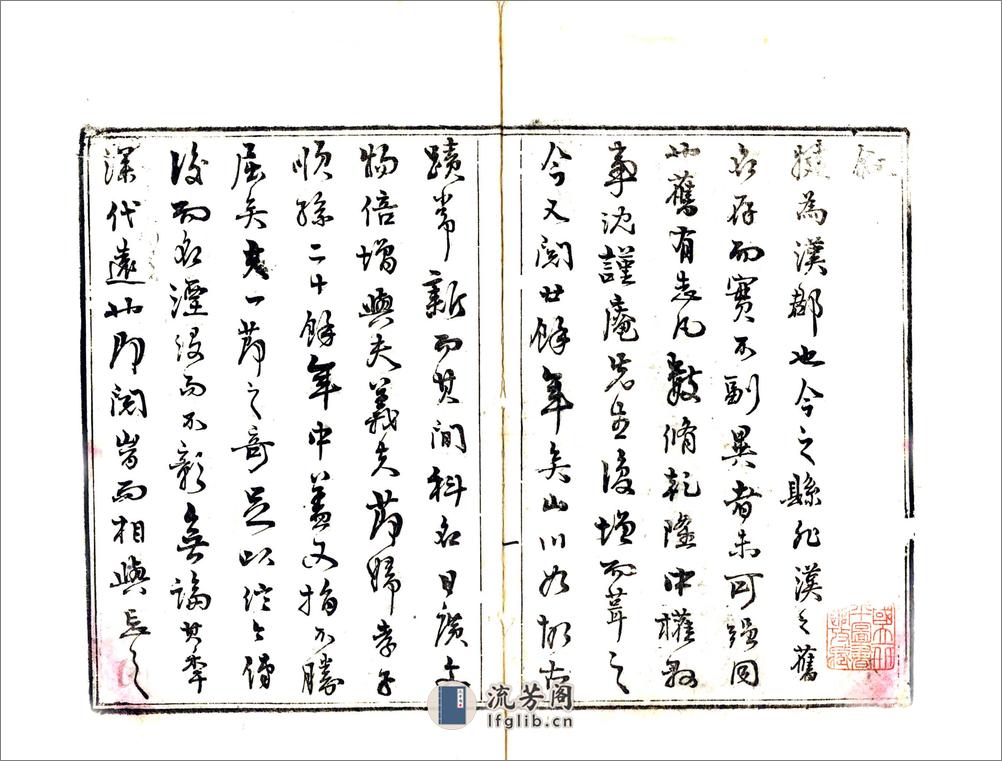 叙
犍為漢郡也今之縣非漢之舊
名存而實不副異者未可強同
也舊有志凡數脩乾隆中權縣
事沈謹庵先生復增而葺之
今又閱廿餘年矣山川如故古
蹟常新而其間科名日廣文
物倍增與夫義夫節婦孝子
順孫二十餘年中蓋又指不勝
屈矣夫一節之奇足以信今傳
後而名湮沒而不彰無論其年
深代遠也即閱時而相與忘之
流芳阁
lfglib.cn